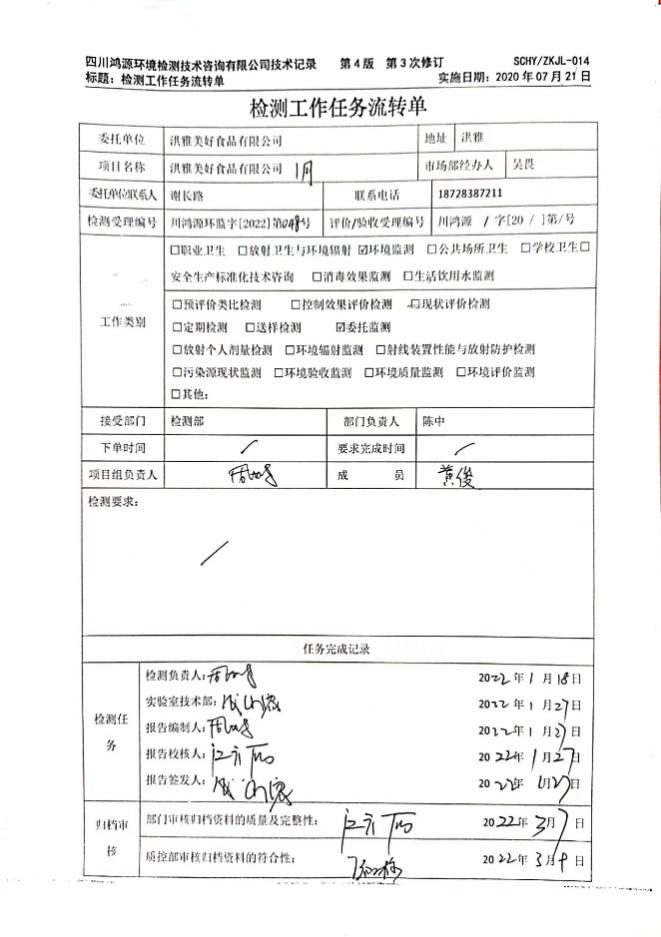 四川鸿源环境检测技术咨询有限公司技术记录 第4版 第3次修订 SCHY/ZKJL-014
标题：检测工作任务流转单 实施日期：2020年07月21日
检测工作任务流转单
委托单位 洪雅美好食品有限公司 地址 洪雅
项目名称 洪雅美好食品有限公司 1月 市场部经办人 吴畏
委托单位联系人 谢长路 联系电话 18728387211
检测受理编号 川鸿源环监字[2022]第048号 评价/验收受理编号 川鸿源 / 字[20 / ]第/号
工作类别
□职业卫生 □放射卫生与环境辐射 ☑环境监测 □公共场所卫生 □学校卫生□
安全生产标准化技术咨询 □消毒效果监测 □生活饮用水监测
□预评价类比检测 □控制效果评价检测 □现状评价检测
□定期检测 □送样检测 ☑委托监测
□放射个人剂量检测 □环境辐射监测 □射线装置性能与放射防护检测
□污染源现状监测 □环境验收监测 □环境质量监测 □环境评价监测
□其他：
接受部门 检测部 部门负责人 陈中
下单时间 / 要求完成时间 /
项目组负责人 成 员 黄俊
检测要求：
/
任务完成记录
检测任务
检测负责人： 2022年1月18日
实验室技术部： 2022年1月27日
报告编制人： 2022年1月27日
报告校核人： 2022年1月27日
报告签发人： 2022年1月27日
归档审核
部门审核归档资料的质量及完整性： 2022年3月7日
质控部审核归档资料的符合性： 2022年3月日